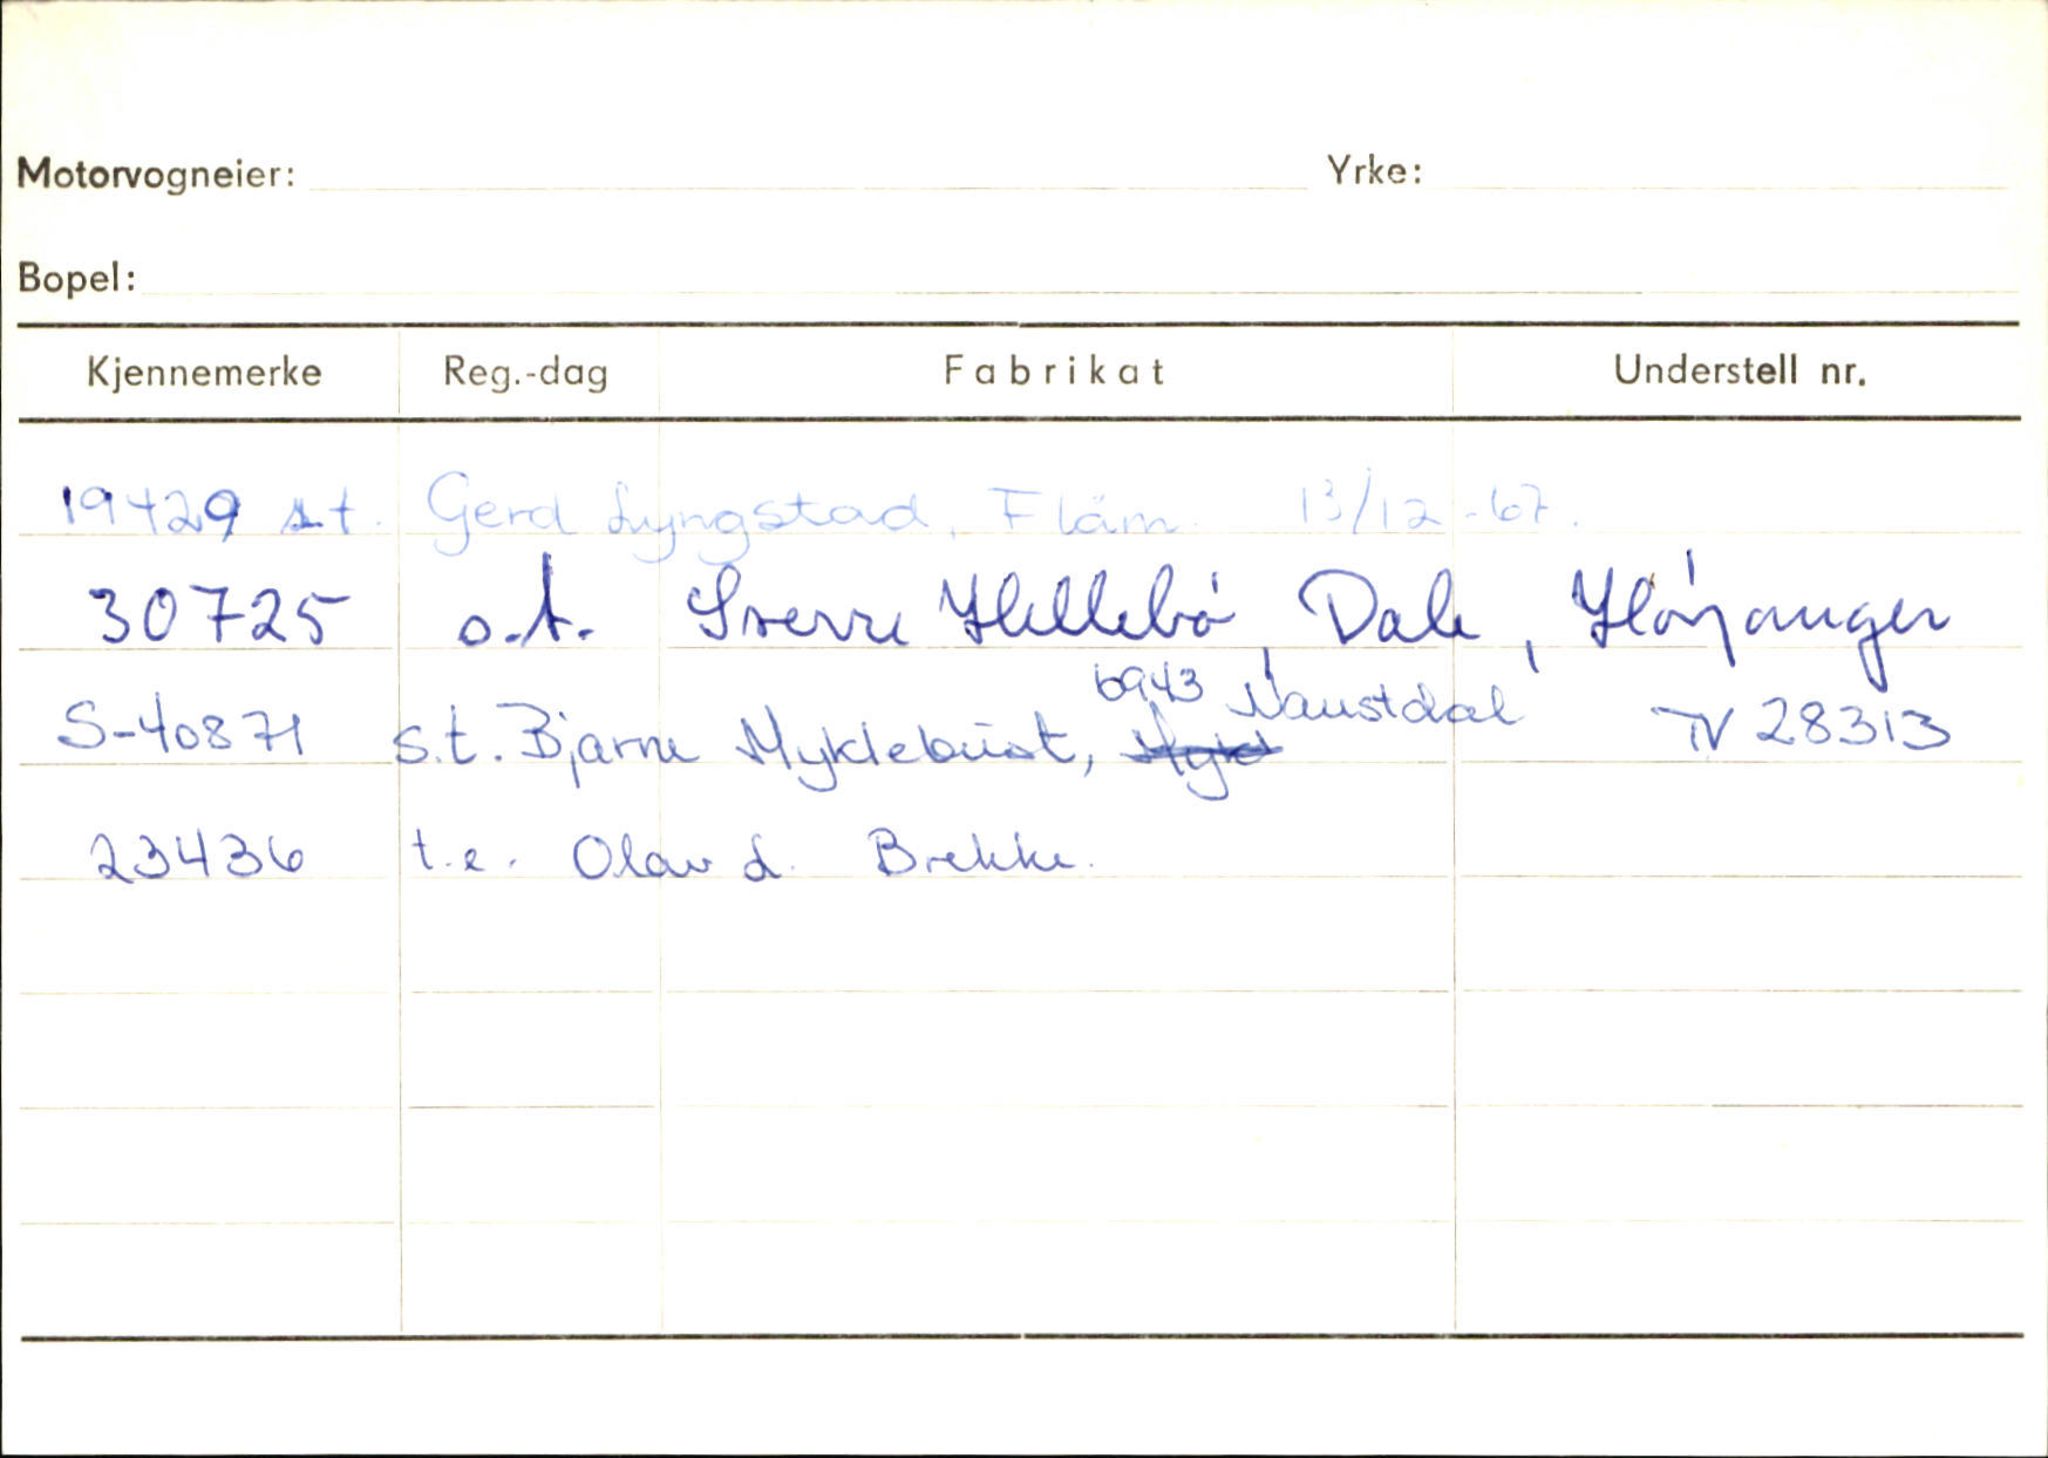 Motorvogneier: Yrke:
Bopel:
Kjennemerke Reg.-dag Fabrikat Understell nr.
19429 s.t. Gerd Lyngstad, Flåm. 13/12-67.
30725 o.t. Sverre Hellebö, Dale, Höyanger
6943 Naustdal
S-40871 s.t. Bjarne Myklebust, Mykl TV 28313
23436 t.e. Olav L. Brekke.